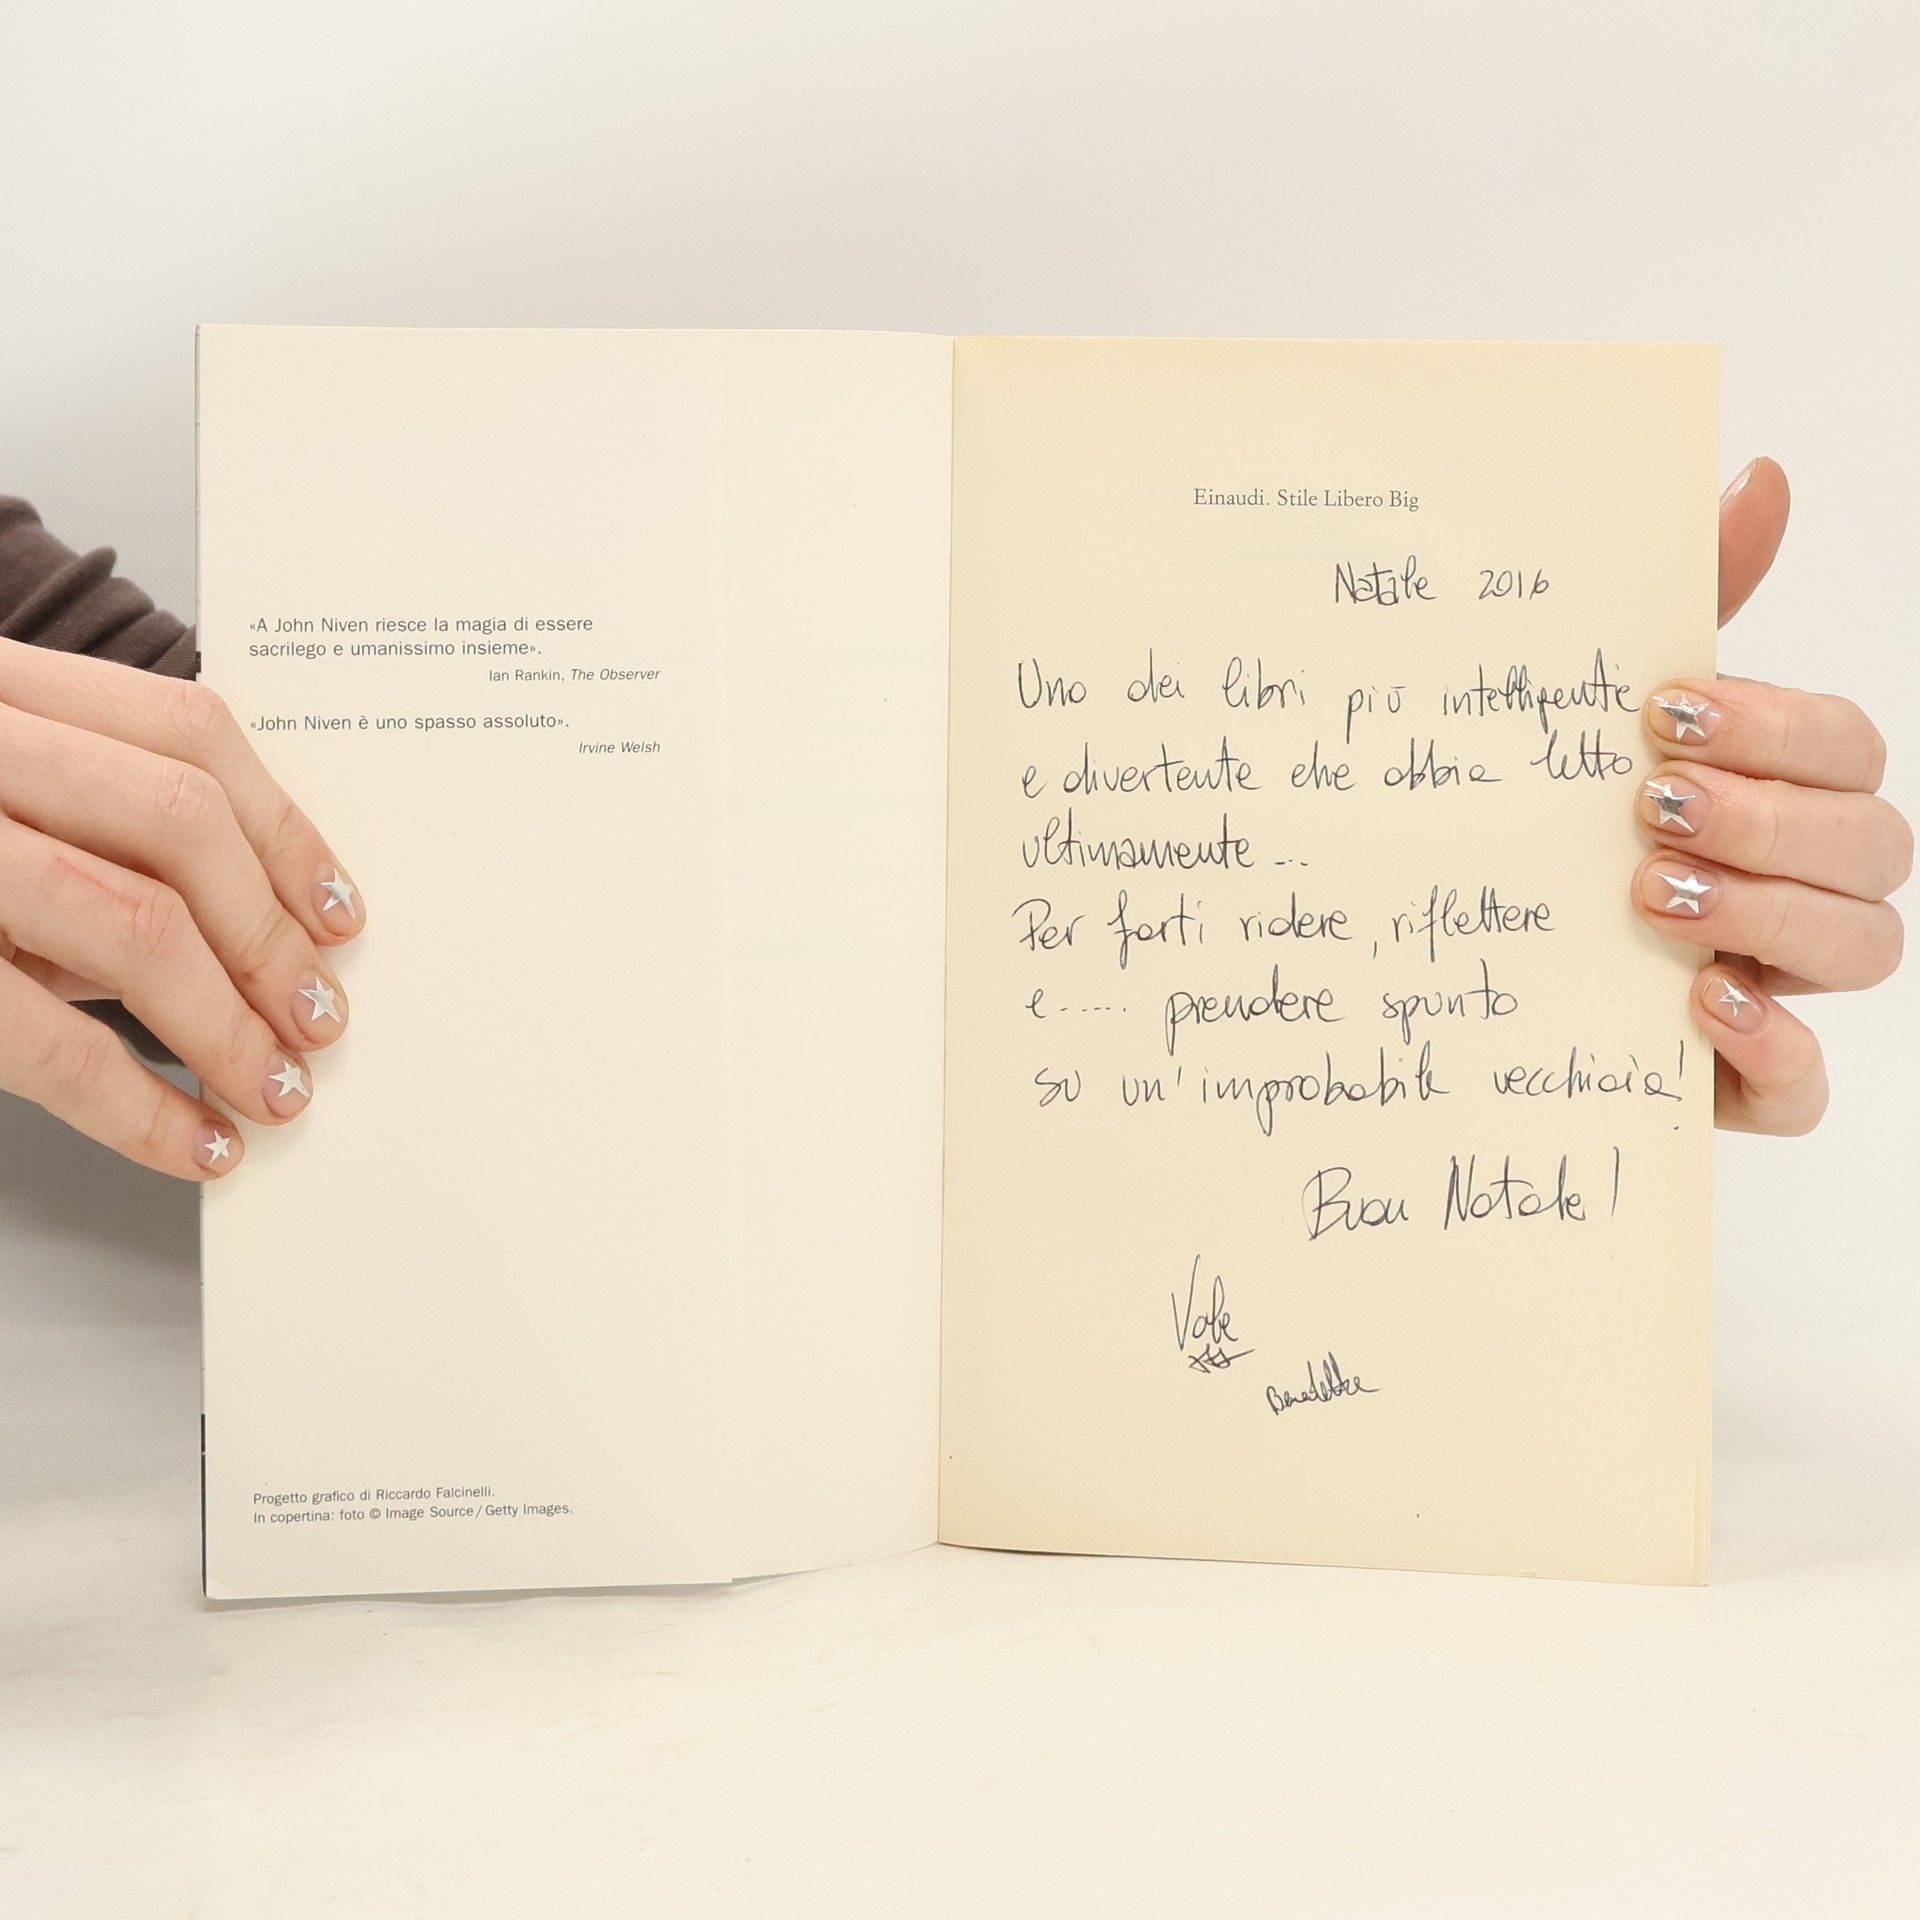 «A John Niven riesce la magia di essere
sacrilego e umanissimo insieme».
Ian Rankin, The Observer
«John Niven è uno spasso assoluto».
Irvine Welsh
Progetto grafico di Riccardo Falcinelli.
In copertina: foto © Image Source / Getty Images.
Einaudi. Stile Libero Big
Natale 2016
Uno dei libri più intelligente
e divertente che abbia letto
ultimamente ...
Per farti ridere, riflettere
e ..... prendere spunto
su un'improbabile vecchiaia!
Buon Natale!
Vale
Benedetta